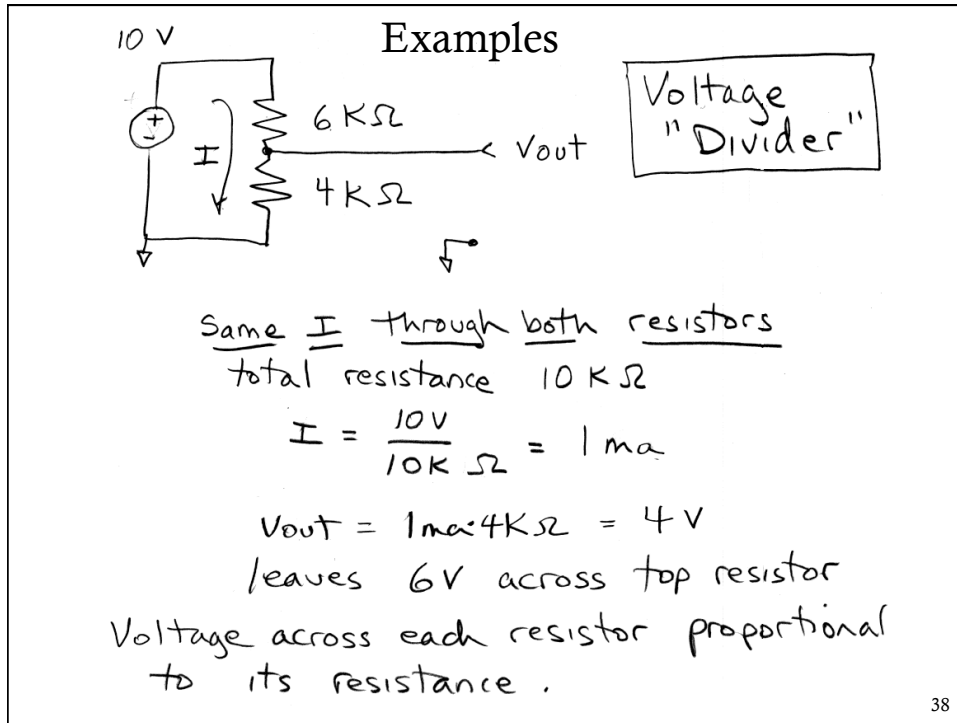 Examples
10 V
Voltage
"Divider"
+
-
I
6 KΩ
Vout
4 KΩ
Same I through both resistors
total resistance 10 KΩ
I = 10V / 10K Ω = 1 ma
Vout = 1ma·4KΩ = 4 V
leaves 6V across top resistor
Voltage across each resistor proportional
to its resistance.
38